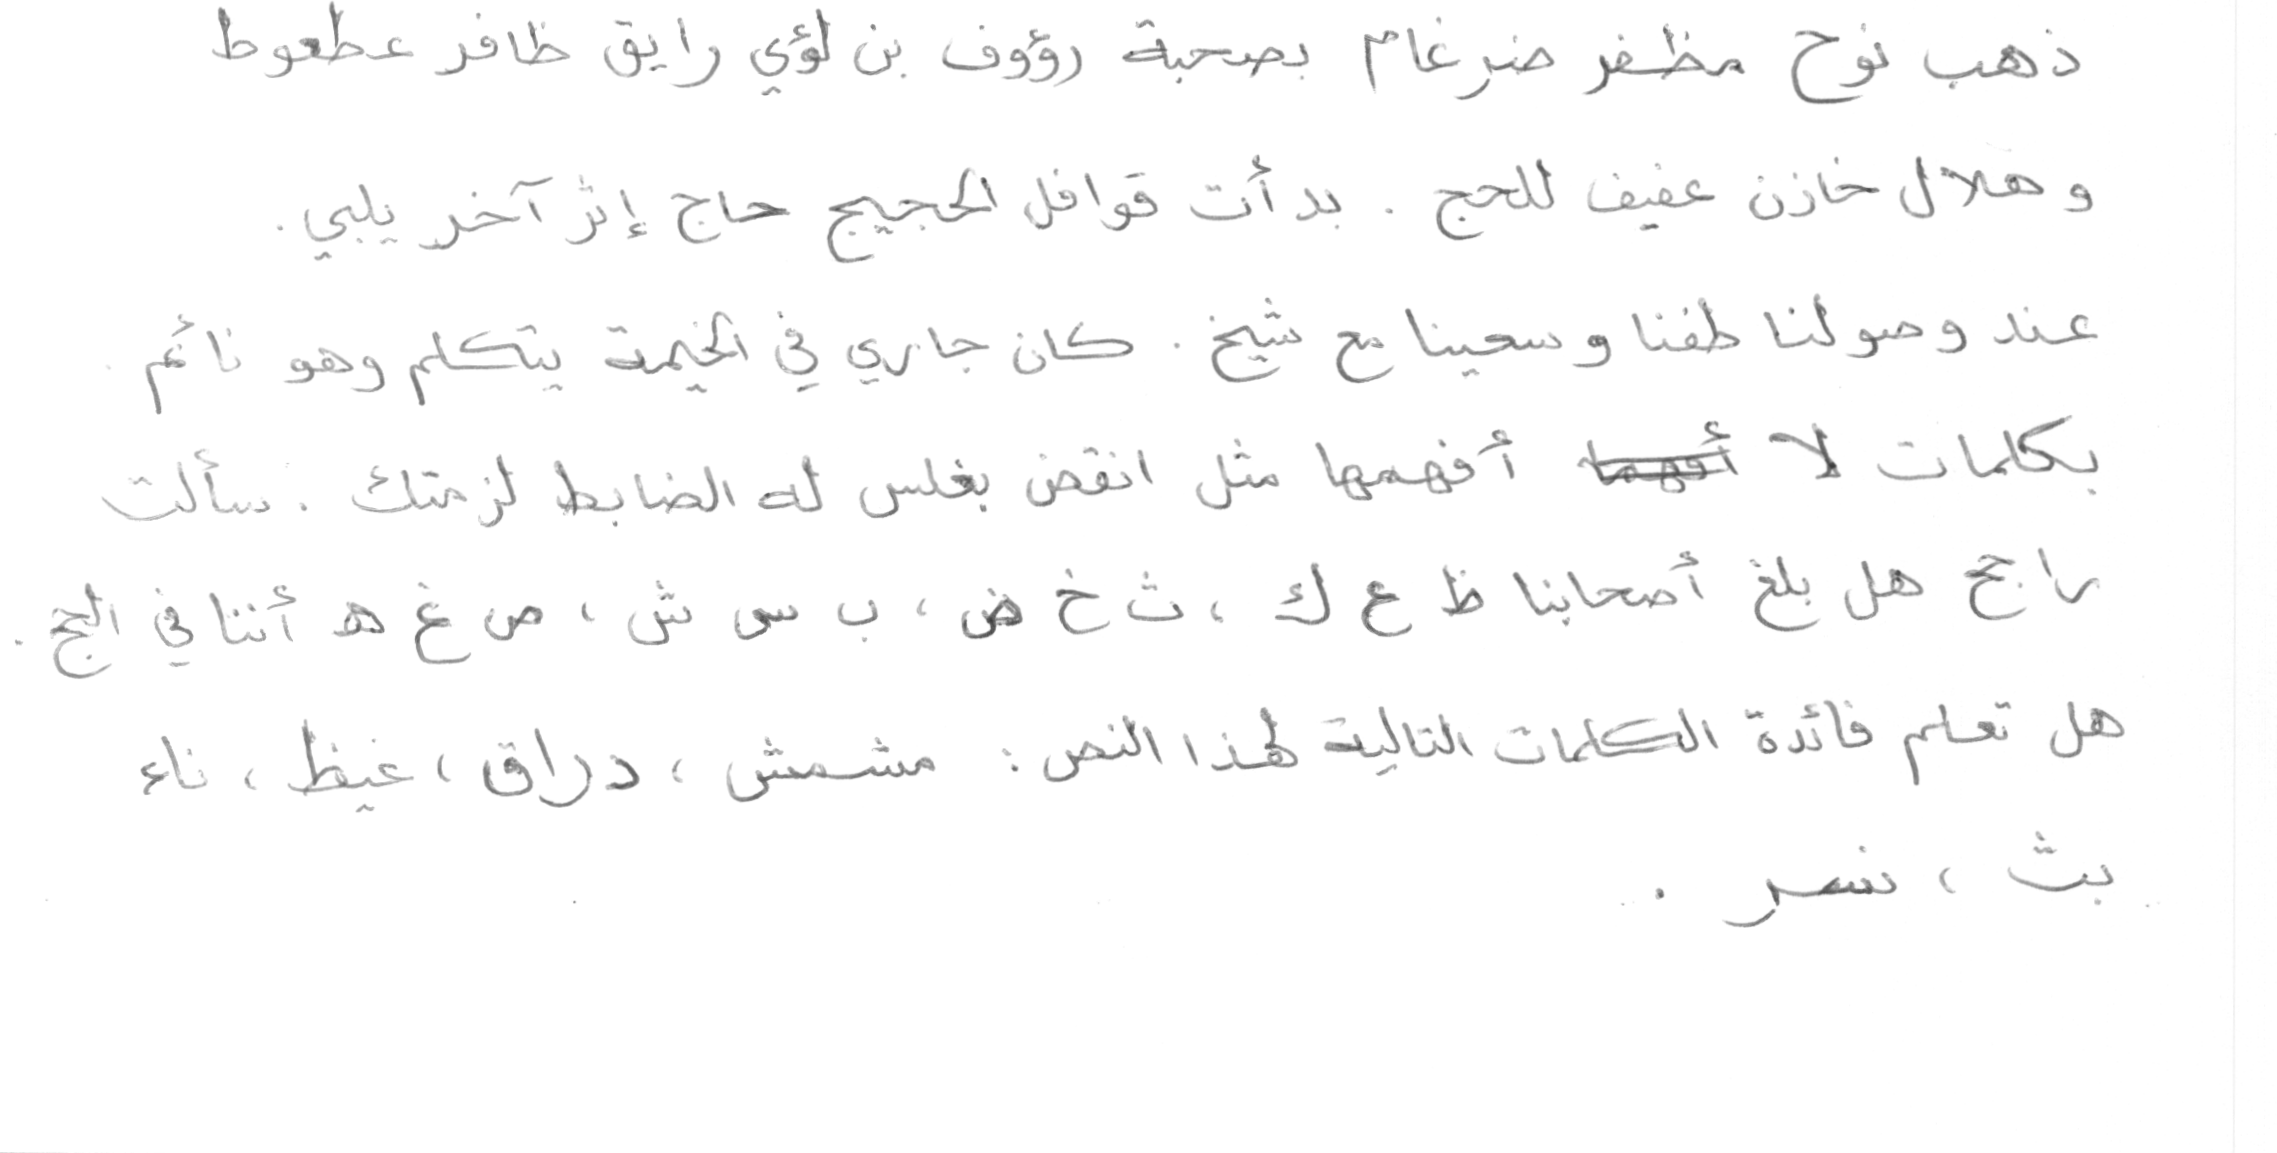 ذهب نوح مظفر ضرغام بصحبة رؤوف بن لؤي رايق ظافر عطعوط
وهلال خازن عفيف للحج . بدأت قوافل الحجيج حاج إثر آخر يلبي .
عند وصولنا طفنا وسعينا مع شيخ . كان جاري في الخيمة يتكلم وهو نائم
بكلمات لا أفهمها مثل انقض بغلس له الضابط لزمتك . سألت
راجح هل بلغ أصحابنا ظ ع ك ، ث خ ض ، ب س ش ، ص غ هـ أننا في الحج .
هل تعلم فائدة الكلمات التالية لهذا النص : مشمش ، دراق ، غيظ ، ناء
بث ، نسر .